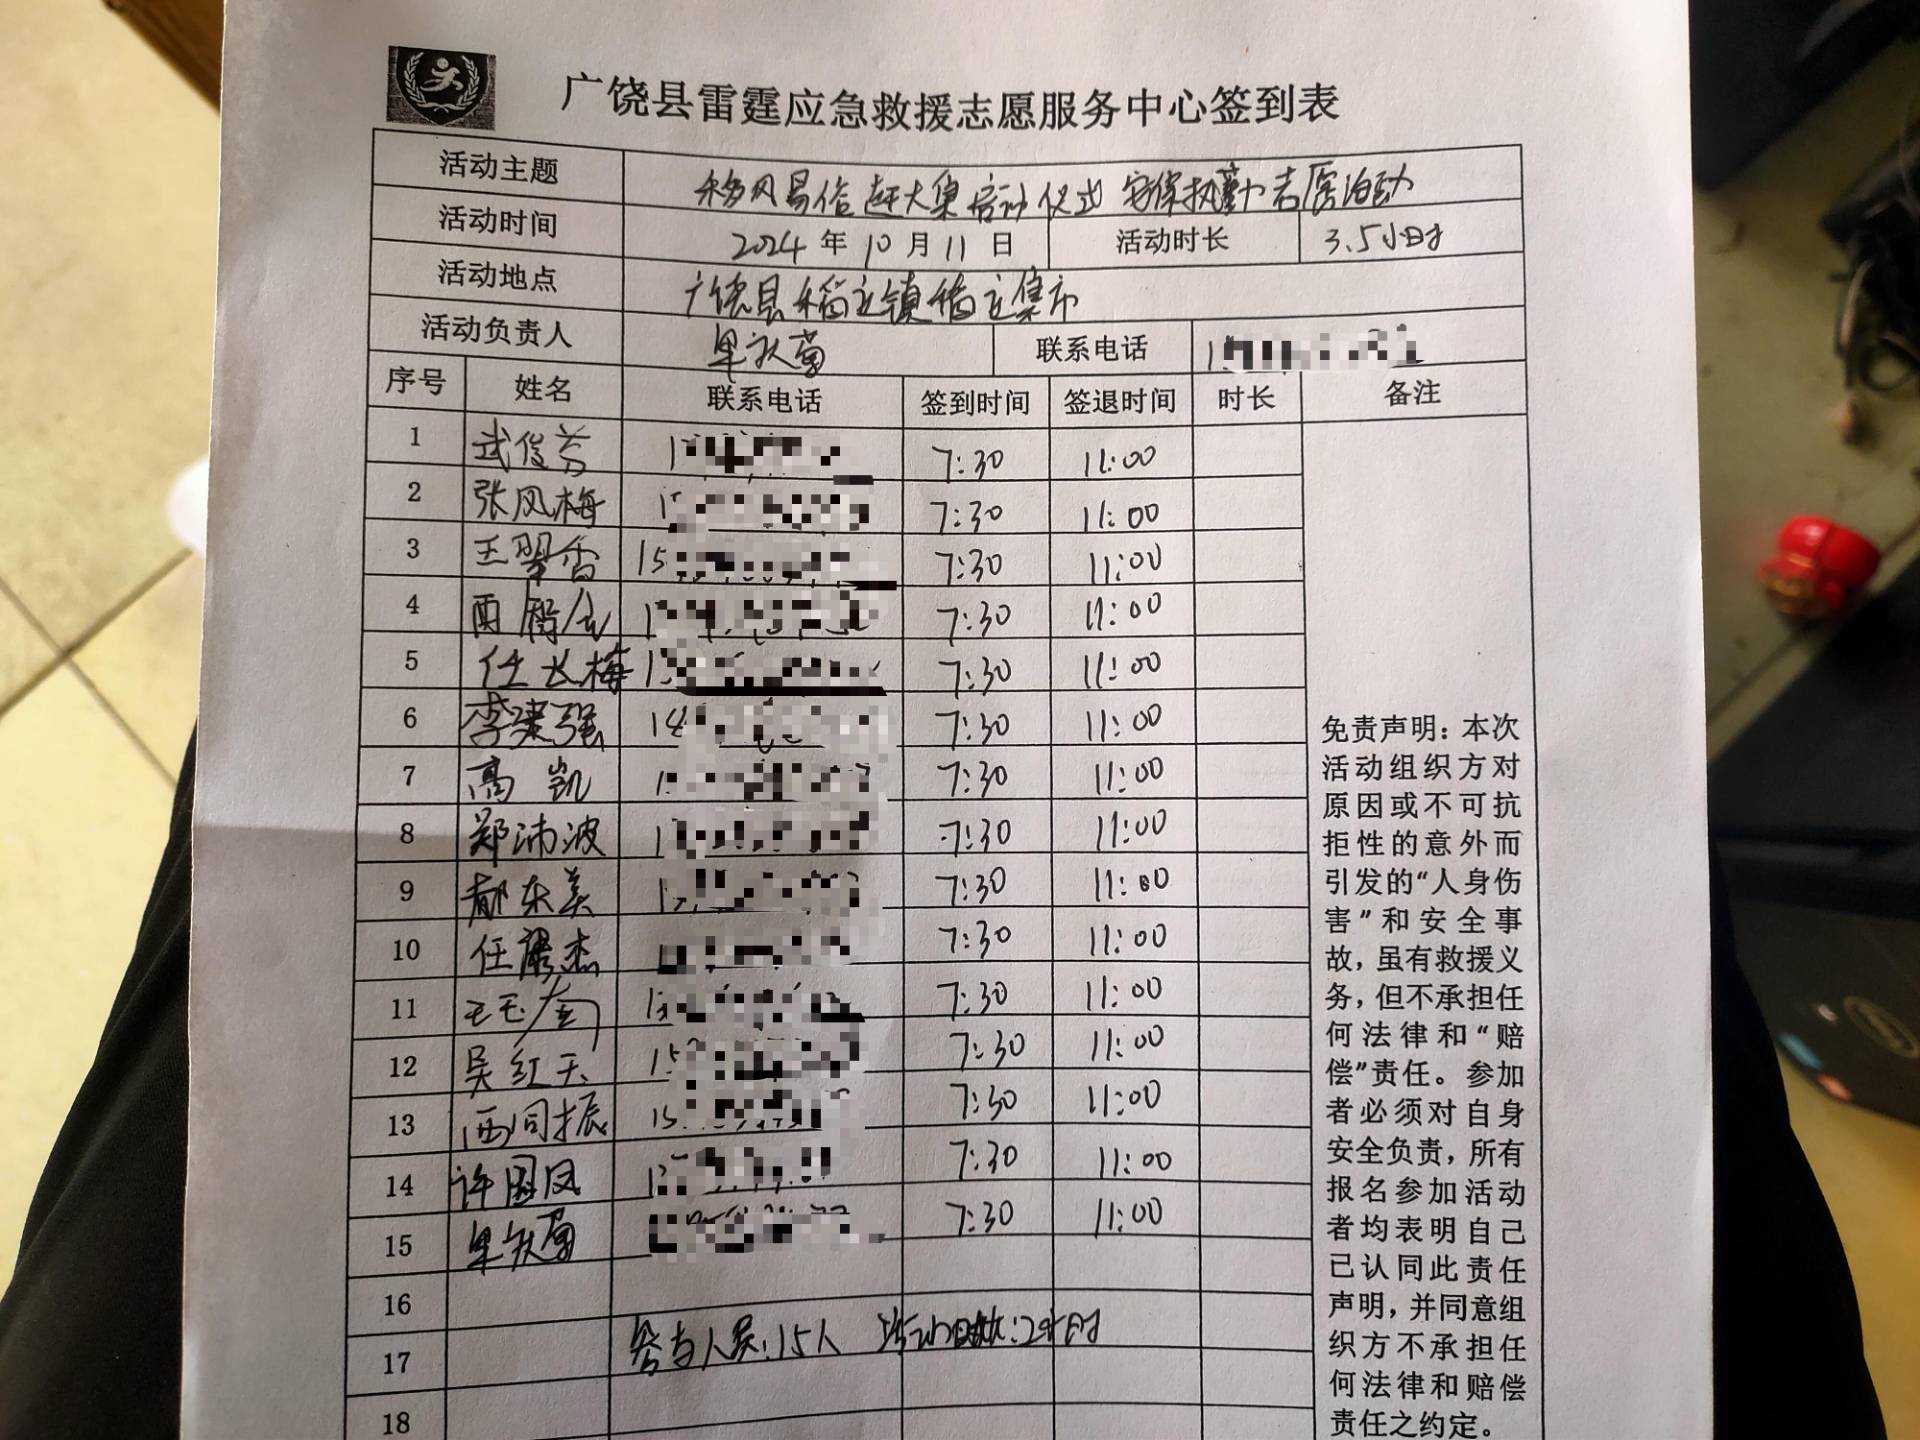 广饶县雷霆应急救援志愿服务中心签到表
活动主题 移风易俗赶大集启动仪式 安保执勤志愿活动
活动时间 2024年10月11日 活动时长 3.5小时
活动地点 广饶县稻庄镇稻庄集市
活动负责人 联系电话
序号 姓名 联系电话 签到时间 签退时间 时长 备注
1 武俊芳 7:30 11:00
2 张风梅 7:30 11:00
3 王翠香 15 7:30 11:00
4 7:30 11:00
5 任长梅 7:30 11:00
6 李建强 7:30 11:00
7 高凯 7:30 11:00
8 郑沛波 7:30 11:00
9 郝东美 7:30 11:00
10 任杰 7:30 11:00
11 7:30 11:00
12 吴红天 15 7:30 11:00
13 西同振 15 7:30 11:00
14 许国凤 7:30 11:00
15 7:30 11:00
16
17 参与人员:15人
18
免责声明：本次
活动组织方对
原因或不可抗
拒性的意外而
引发的“人身伤
害”和安全事
故，虽有救援义
务，但不承担任
何法律和“赔
偿”责任。参加
者必须对自身
安全负责，所有
报名参加活动
者均表明自己
已认同此责任
声明，并同意组
织方不承担任
何法律和赔偿
责任之约定。